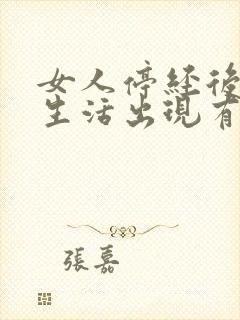 女人停经後
生活出现有
張嘉